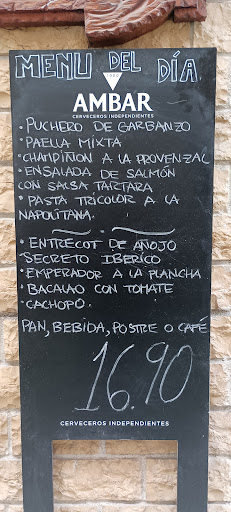 MENU DEL DÍA
1900
AMBAR
CERVECEROS INDEPENDIENTES
• PUCHERO DE GARBANZO
• PAELLA MIXTA
• CHAMPIÑON A LA PROVENZAL
• ENSALADA DE SALMÓN
CON SALSA TARTARA
• PASTA TRICOLOR A LA
NAPOLITANA.
• ENTRECOT DE AÑOJO
SECRETO IBERICO
• EMPERADOR A LA PLANCHA.
• BACALAO CON TOMATE
• CACHOPO.
PAN, BEBIDA, POSTRE O CAFÉ
16.90
CERVECEROS INDEPENDIENTES